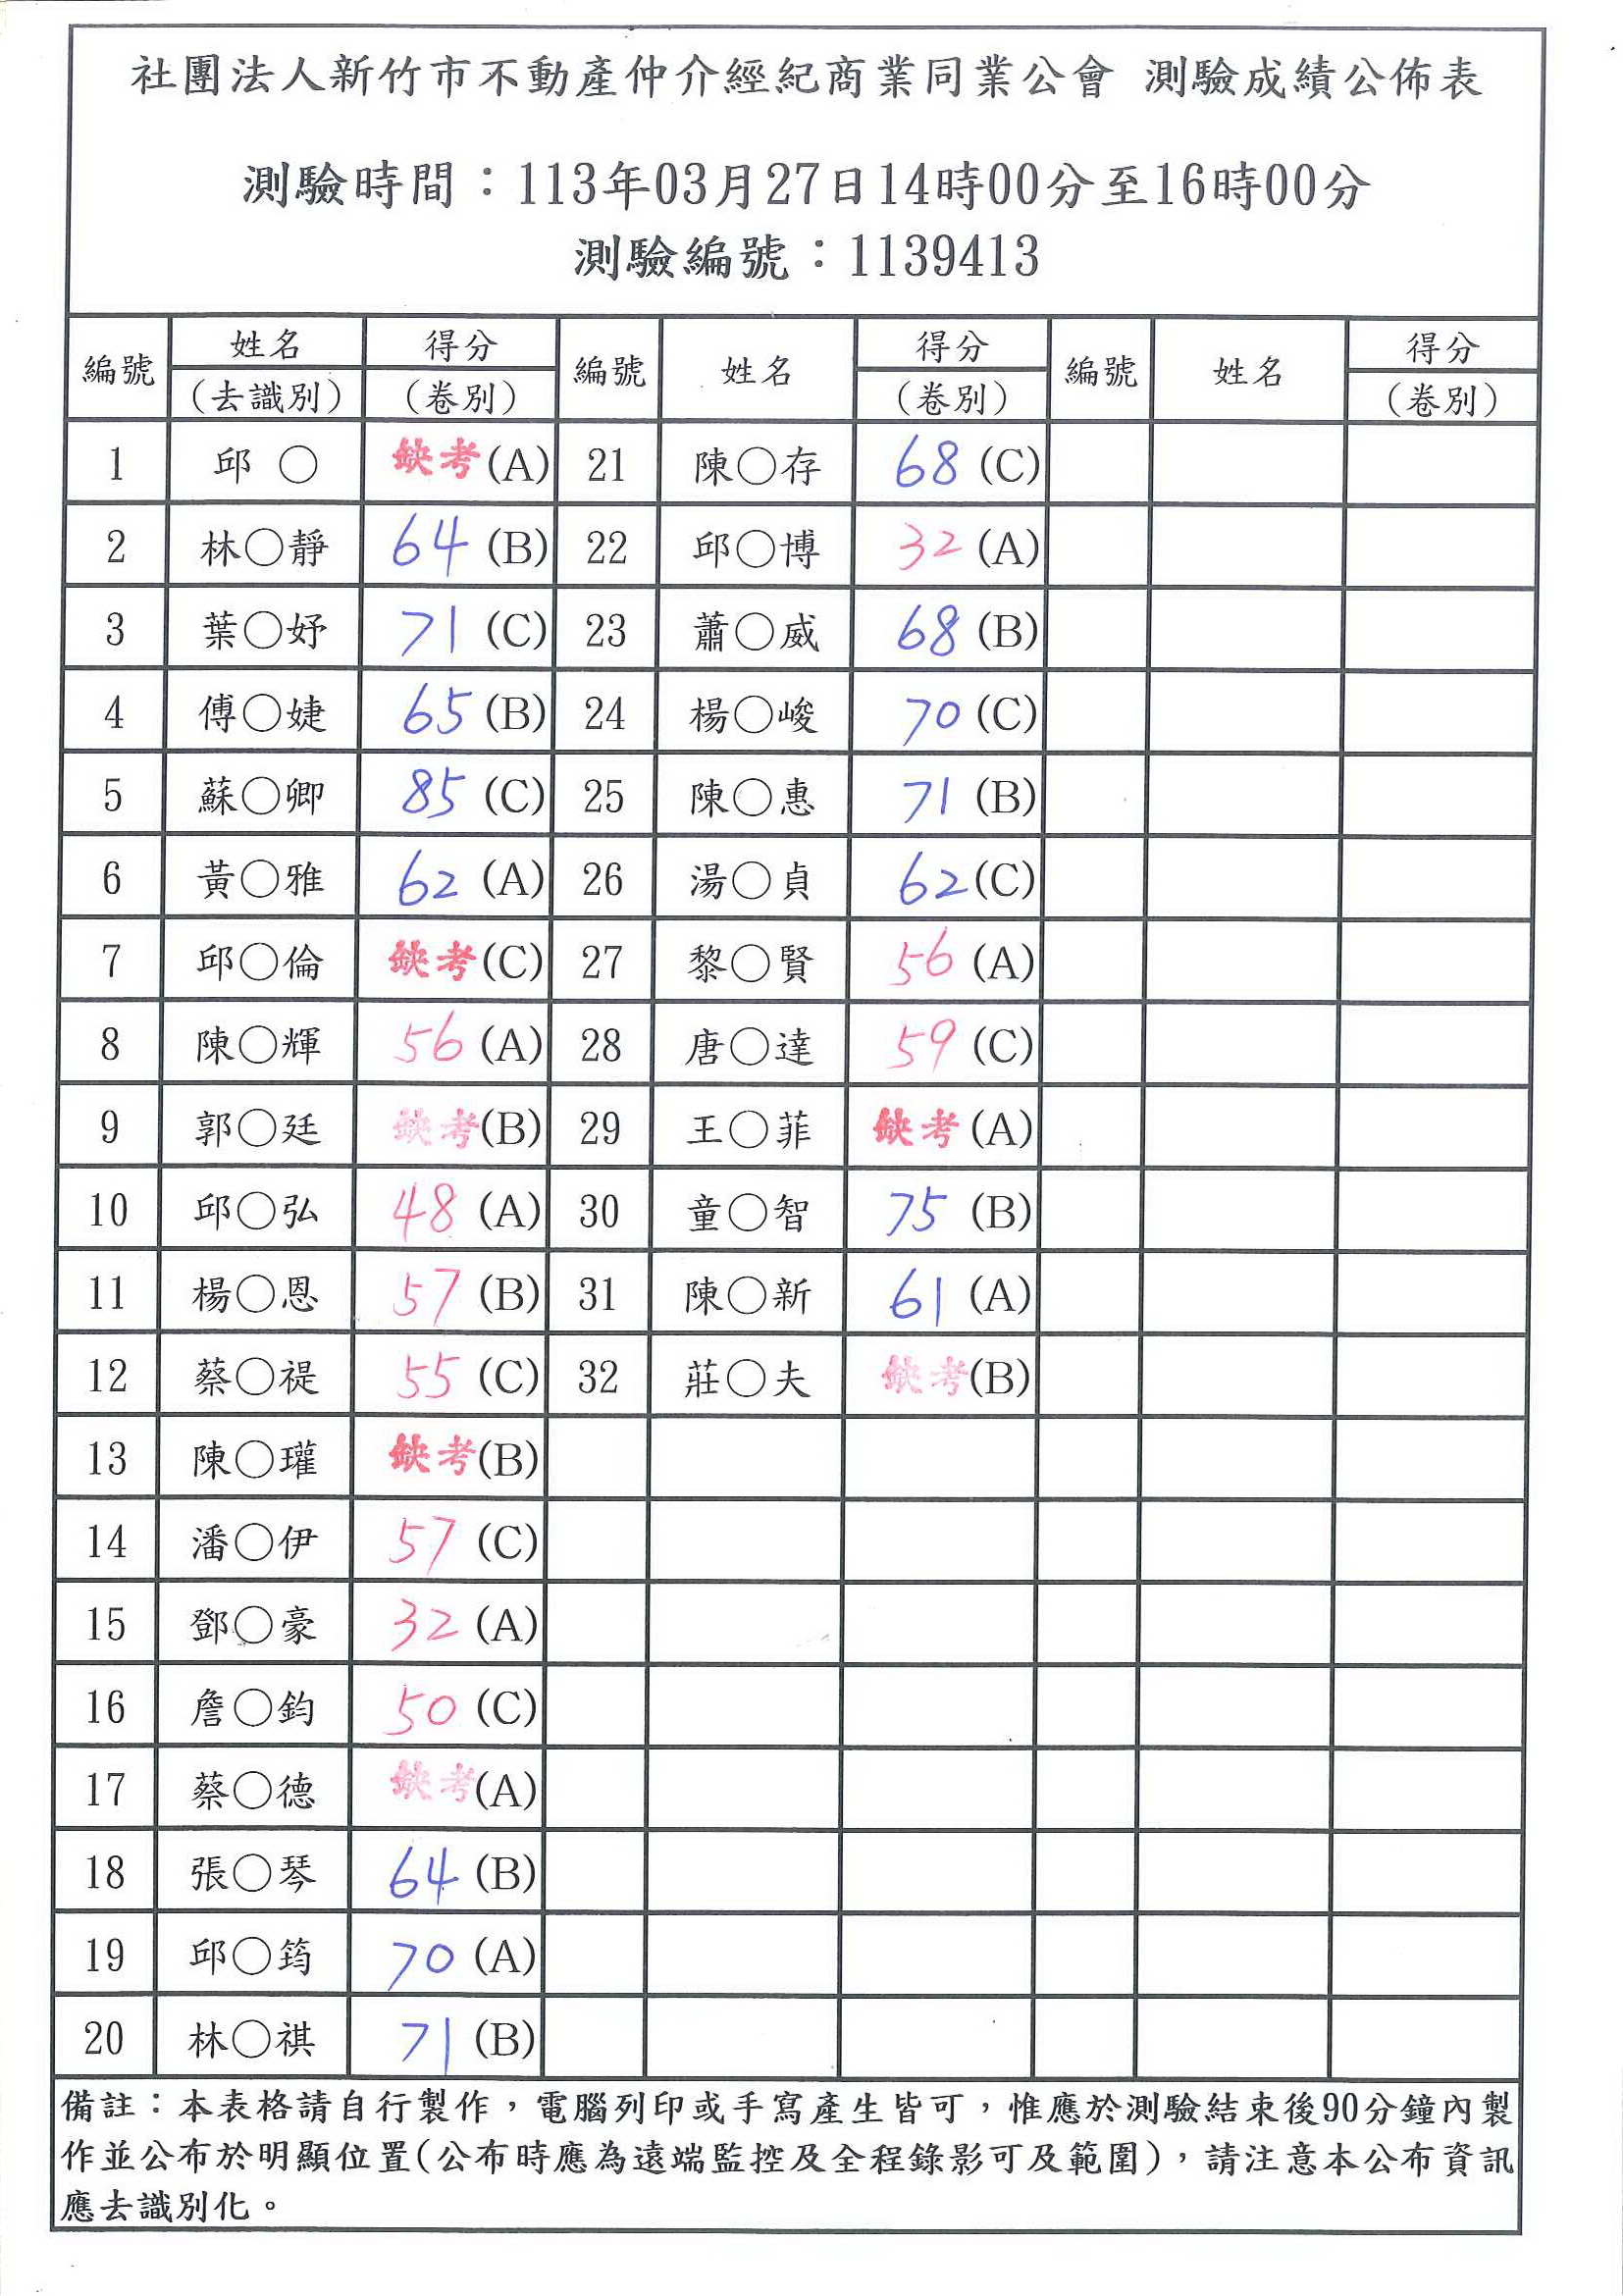 社團法人新竹市不動產仲介經紀商業同業公會 測驗成績公佈表
測驗時間：113年03月27日14時00分至16時00分
測驗編號：1139413
編號 姓名 (去識別) 得分 (卷別) 編號 姓名 得分 (卷別) 編號 姓名 得分 (卷別)
1 邱 ○ 缺考 (A) 21 陳○存 68 (C)
2 林○靜 64 (B) 22 邱○博 32 (A)
3 葉○妤 71 (C) 23 蕭○威 68 (B)
4 傅○婕 65 (B) 24 楊○峻 70 (C)
5 蘇○卿 85 (C) 25 陳○惠 71 (B)
6 黃○雅 62 (A) 26 湯○貞 62 (C)
7 邱○倫 缺考 (C) 27 黎○賢 56 (A)
8 陳○輝 56 (A) 28 唐○達 59 (C)
9 郭○廷 缺考 (B) 29 王○菲 缺考 (A)
10 邱○弘 48 (A) 30 童○智 75 (B)
11 楊○恩 57 (B) 31 陳○新 61 (A)
12 蔡○禔 55 (C) 32 莊○夫 缺考 (B)
13 陳○瓘 缺考 (B)
14 潘○伊 57 (C)
15 鄧○豪 32 (A)
16 詹○鈞 50 (C)
17 蔡○德 缺考 (A)
18 張○琴 64 (B)
19 邱○筠 70 (A)
20 林○祺 71 (B)
備註：本表格請自行製作，電腦列印或手寫產生皆可，惟應於測驗結束後90分鐘內製
作並公布於明顯位置(公布時應為遠端監控及全程錄影可及範圍)，請注意本公布資訊
應去識別化。